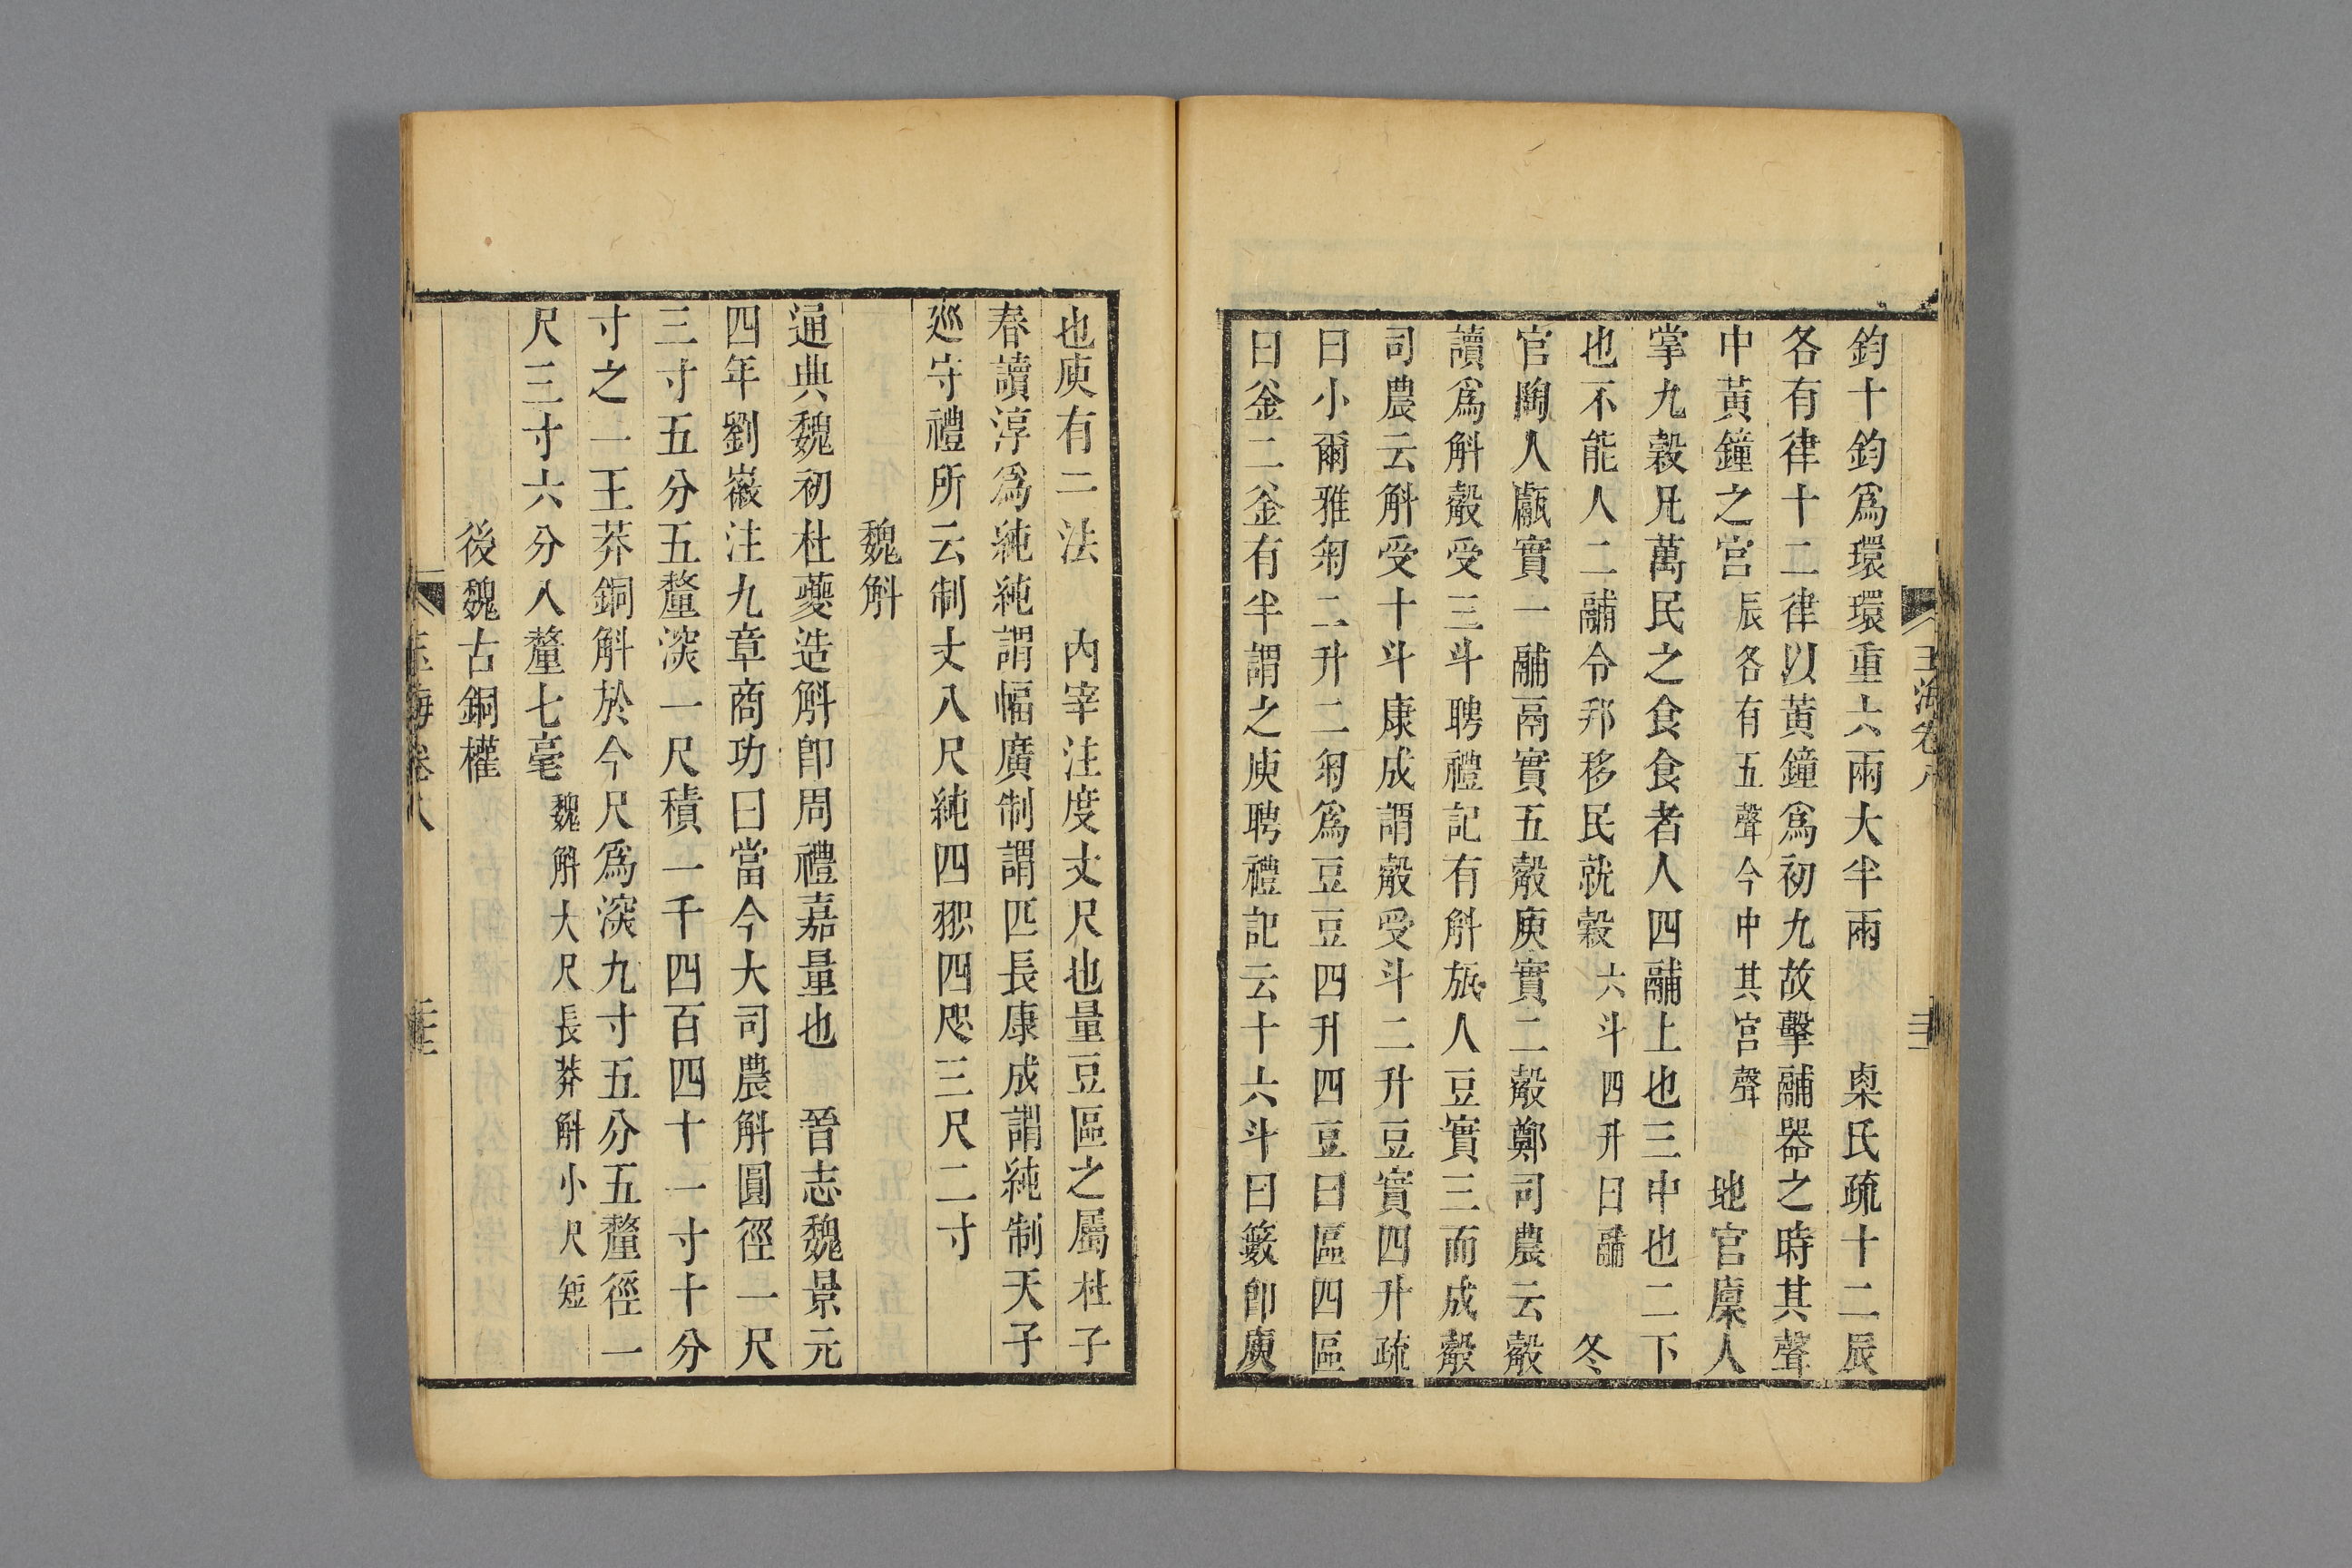 玉海卷八
鈞十鈞爲環環重六兩大半兩　㮚氏疏十二辰
各有律十二律以黃鐘爲初九故擊鬴器之時其聲
中黃鐘之宮辰各有五聲今中其宮聲　地官廩人
掌九穀凡萬民之食食者人四鬴上也三中也二下
也不能人二鬴令邦移民就穀六斗四升曰鬴　冬
官陶人甗實一鬴鬲實五觳庾實二觳鄭司農云觳
讀爲斛觳受三斗聘禮記有斛旊人豆實三而成觳
司農云斛受十斗康成謂觳受斗二升豆實四升疏
曰小爾雅匊二升二匊爲豆豆四升四豆曰區四區
曰釜二釜有半謂之庾聘禮記云十六斗曰籔卽庾
也庾有二法　內宰注度丈尺也量豆區之屬杜子
春讀淳爲純純謂幅廣制謂匹長康成謂純制天子
廵守禮所云制丈八尺純四𦐇四咫三尺二寸
魏斛
通典魏初杜夔造斛卽周禮嘉量也　晉志魏景元
四年劉徽注九章商功曰當今大司農斛圓徑一尺
三寸五分五釐深一尺積一千四百四十一寸十分
寸之一王莽銅斛於今尺爲深九寸五分五釐徑一
尺三寸六分八釐七毫魏斛大尺長莽斛小尺短
後魏古銅權
玉海卷八